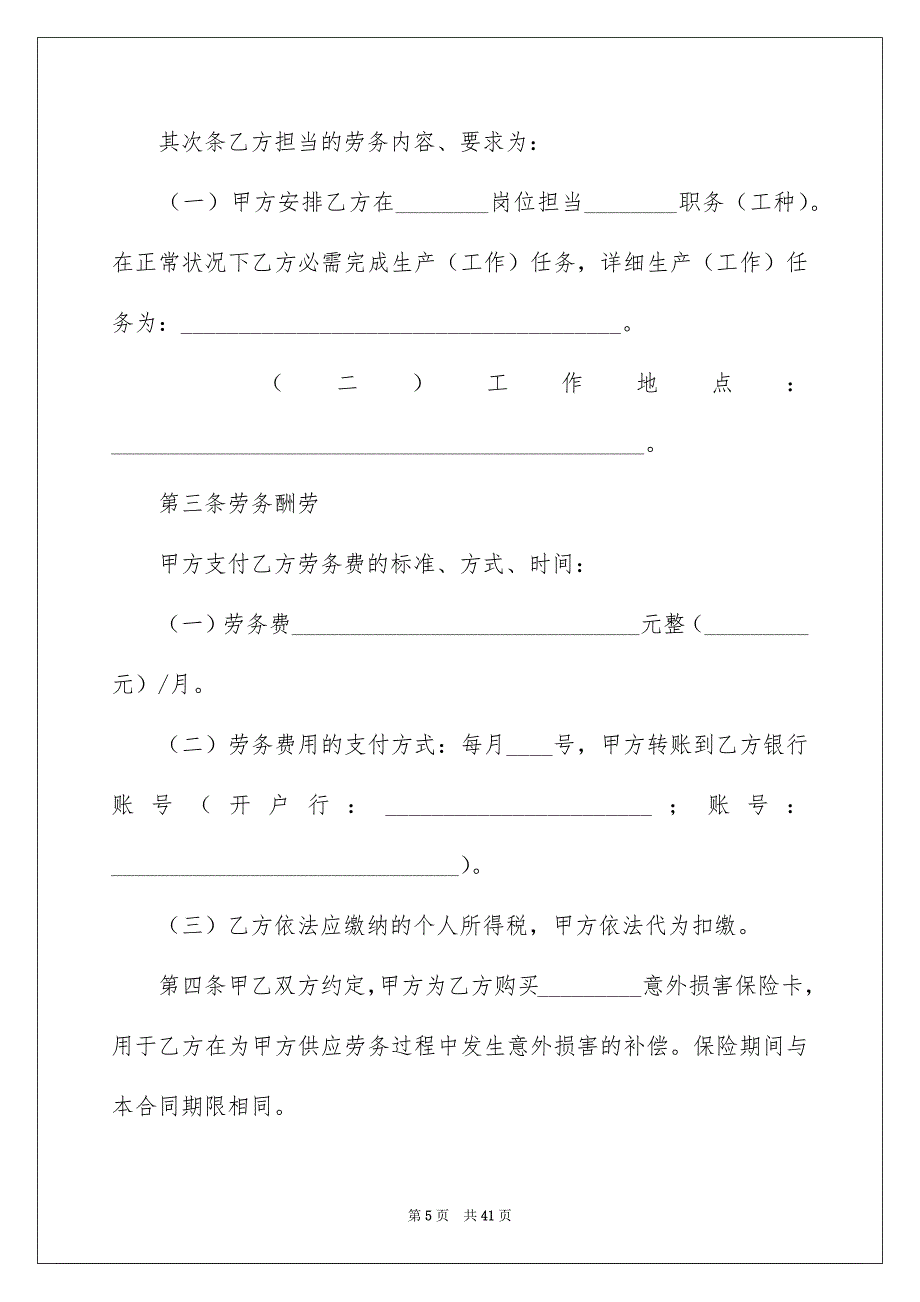 其次条乙方担当的劳务内容、要求为：
（一）甲方安排乙方在________岗位担当________职务（工种）。
在正常状况下乙方必需完成生产（工作）任务，详细生产（工作）任
务为：______________________________________。
（二）工作地点：
______________________________________________。
第三条劳务酬劳
甲方支付乙方劳务费的标准、方式、时间：
（一）劳务费______________________________元整（_________
元）/月。
（二）劳务费用的支付方式：每月____号，甲方转账到乙方银行
账号（开户行：_______________________；账号：
______________________________）。
（三）乙方依法应缴纳的个人所得税，甲方依法代为扣缴。
第四条甲乙双方约定，甲方为乙方购买_________意外损害保险卡，
用于乙方在为甲方供应劳务过程中发生意外损害的补偿。保险期间与
本合同期限相同。
第5页 共41页